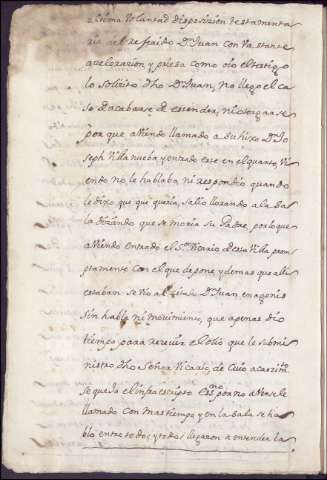 ultima Voluntad disposicion testamenta
ria del referido Dn. Juan con bastante
azeleracion, y priesa como oio el testigo
lo solizito dho Dn. Juan, no llego el ca
so de acabarse de estender, ni otorgarse
por que aviendo llamado a su hixo Dn. Jo
seph Villanueba y entrado este en el quarto, Vi
endo no le hablaba ni respondio quando
le dixo que que queria, salio llorando a la sa
la diziendo que se moria su Padre, por lo que
aviendo entrado el Sr. Vicario de esta Villa prom
ptamente con el que depone, y demas que alli
estaban se vio al dho Dn. Juan en agonia
sin habla ni movimiento, que apenas dio
tiempo para recevir el olio que le submi
nistro dho Señor Vicario, de cuio acaezimto.
se quejo el infraescripto Essno. por no averle
llamado con mas tiempo y en la sala se ha
blo entre todos, y todos llegaron a entender la